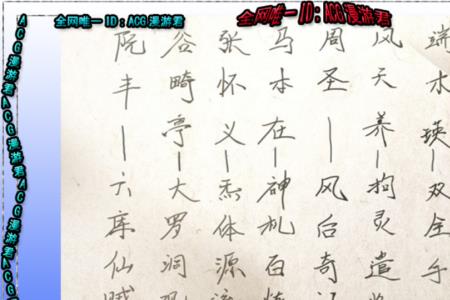 全网唯一ID:ACG漫游君
全网唯一ID:ACG漫游君
ACG漫游君ACG漫游君ACG漫游君ACG
端木瑛—双全手
风天养—拘灵遣
周圣—风后奇
马本在—神机百炼
张怀义—炁体源
谷畸亭—大罗洞
阮丰—六库仙贼